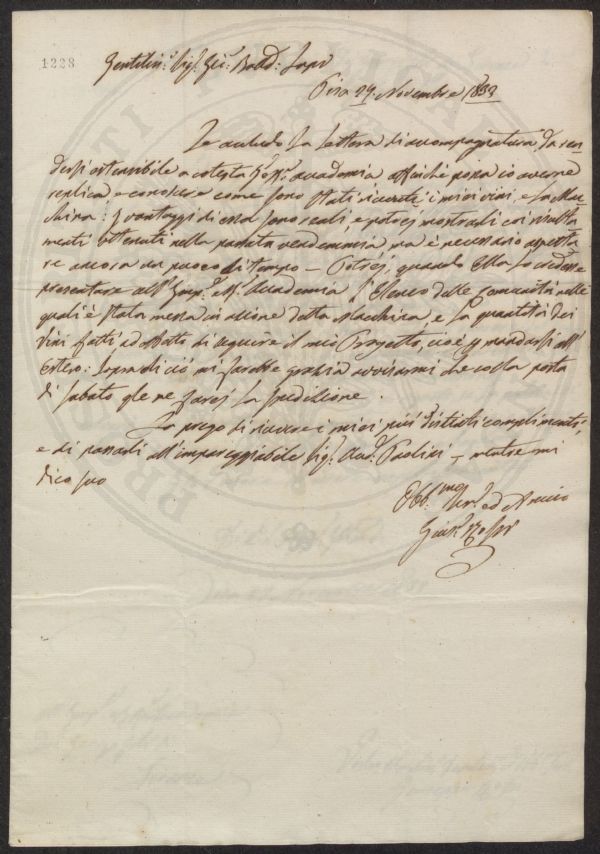 1228
Gentilis.º Sig.r Gio: Batt.
Pisa 29. Novembre 1833
Le accludo la lettera di accompagnatura da ren-
dersi ostensibile a cotesta Accademia affinchè possa io averne
replica, e conoscere come sono stati ricevuti i miei vini, e la Mac-
china: I vantaggi di essa sono reali, e potrei mostrarli coi risulta
menti ottenuti nella passata vendemmia ma è necessario aspetta
re ancora un poco di tempo — Potrei, quando Ella lo credesse
presentare all' Accademia l'Elenco delle Comunità nelle
quali è stata messa in azione detta Macchina e la quantità dei
vini fatti ad effetto di seguire il mio Progetto, cioè mandarsi all'
Estero: Sopra di ciò mi farebbe grazia avvisarmi che colla posta
di Sabato gle ne farei la spedizione.
La prego di ricevere i miei più distinti complimenti,
e di passarli all'impareggiabile Sig.r Paolini — mentre mi
dico suo
Obb.mo Ser.e ed Amico
Gius.e